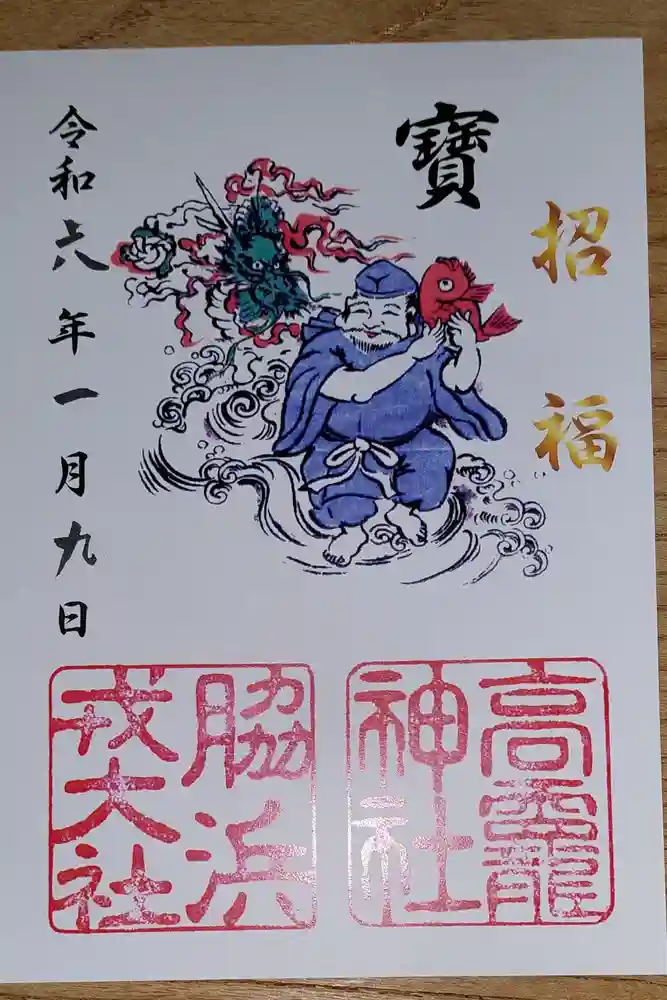 招福
寶
令和六年一月九日
高龗神社
脇浜戎大社